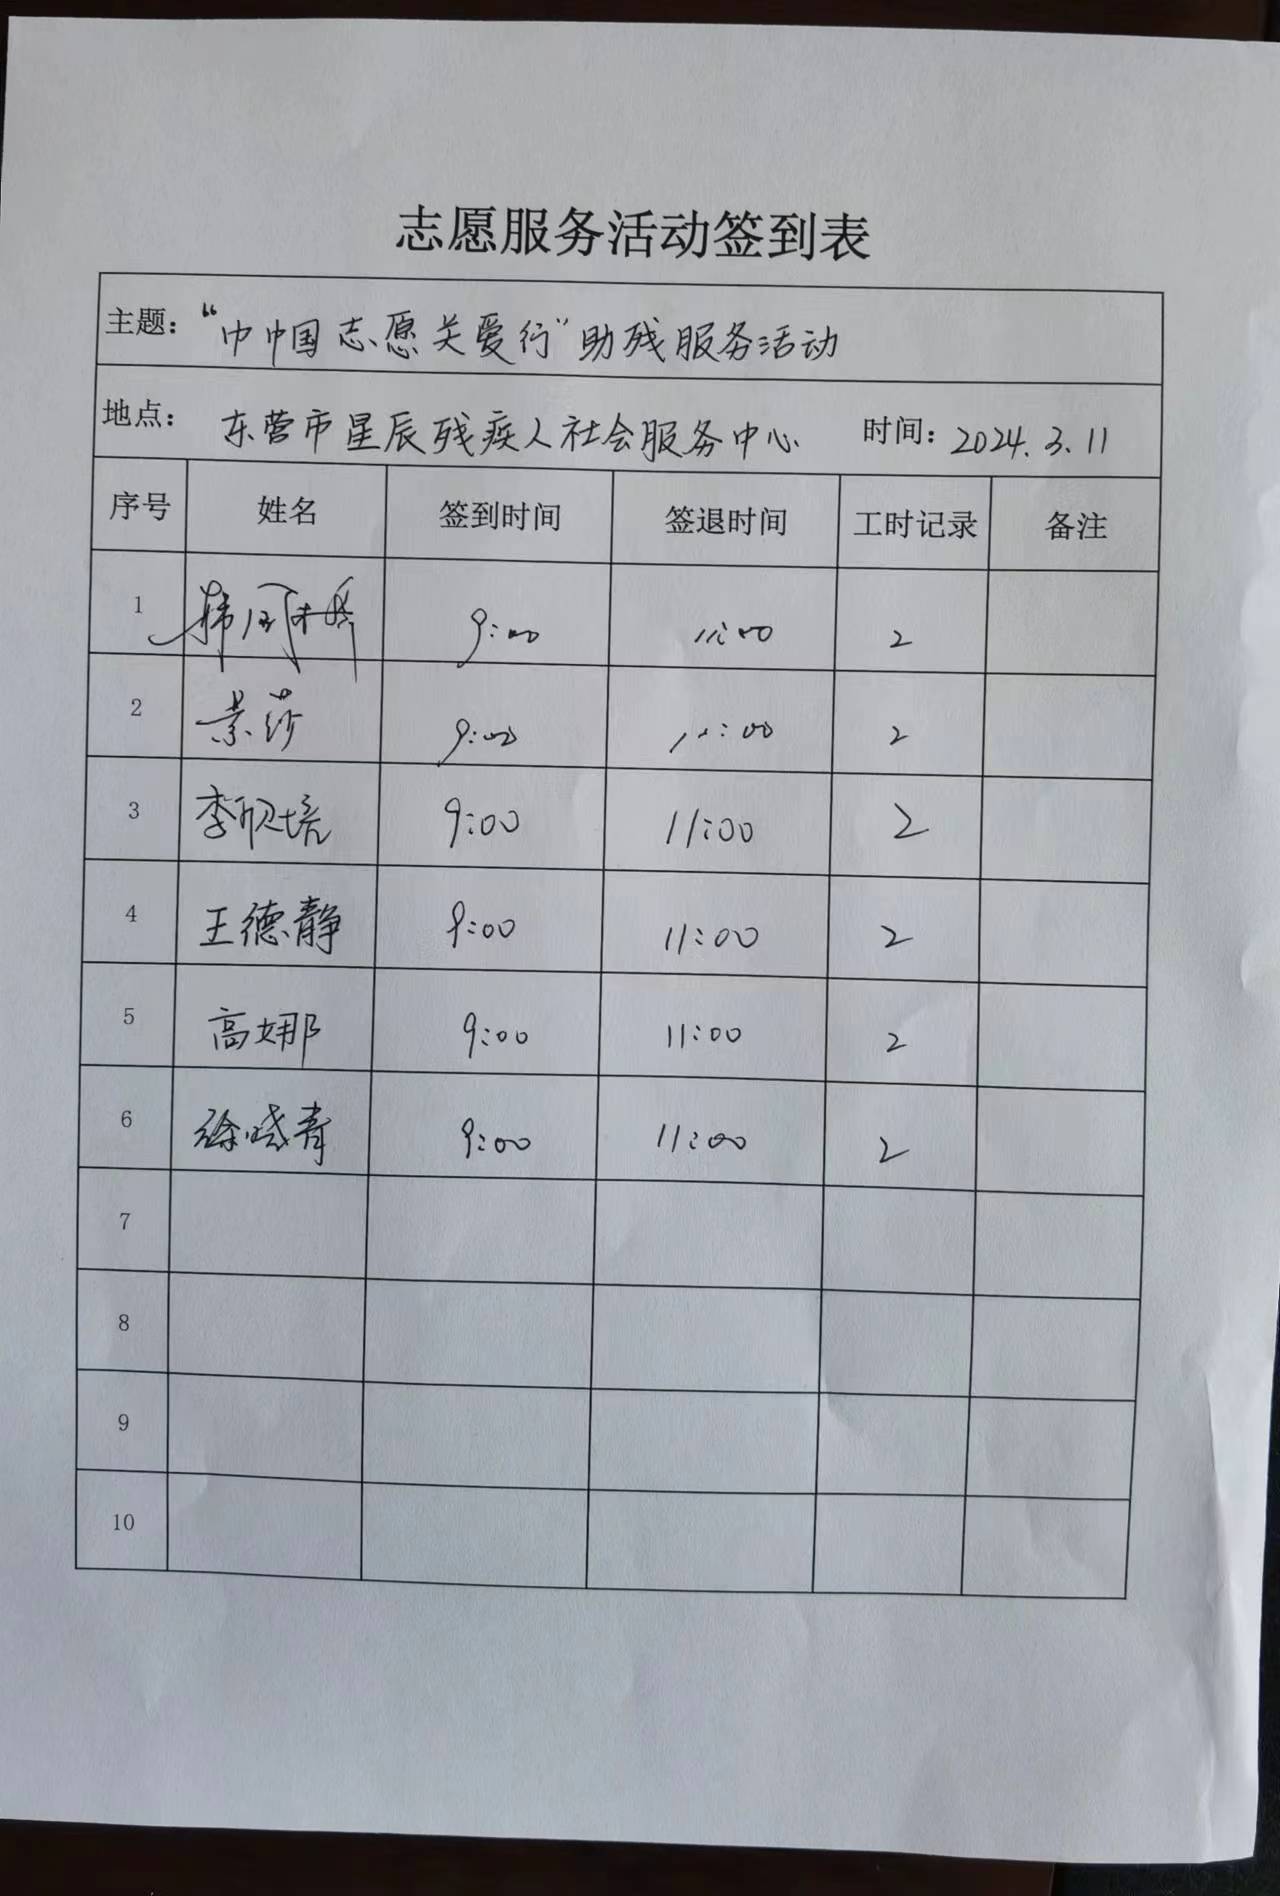 志愿服务活动签到表
主题：“巾帼志愿关爱行”助残服务活动
地点：东营市星辰残疾人社会服务中心 时间：2024.3.11
序号 姓名 签到时间 签退时间 工时记录 备注
1 韩 9:00 11:00 2
2 景莎 9:00 11:00 2
3 李 培 9:00 11:00 2
4 王德静 9:00 11:00 2
5 高娜 9:00 11:00 2
6 徐晓青 9:00 11:00 2
7
8
9
10